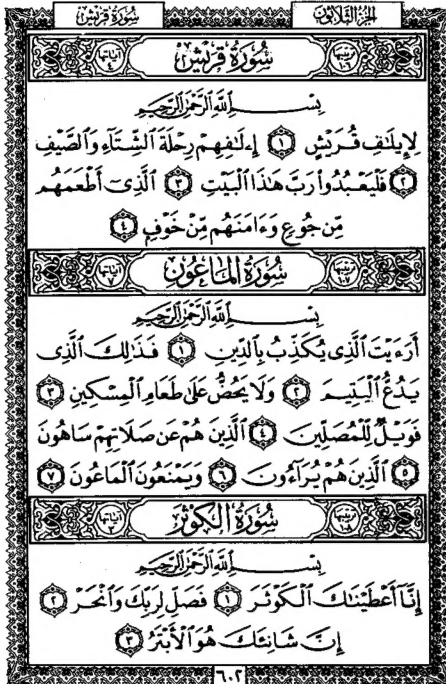 سُورَةُ قُرَيْشٍ
الجُزْءُ الثَّلَاثُونَ
سُورَةُ قُرَيْشٍ
بِسْمِ ٱللَّهِ ٱلرَّحْمَٰنِ ٱلرَّحِيمِ
لِإِيلَٰفِ قُرَيْشٍ ١ إِۦلَٰفِهِمْ رِحْلَةَ ٱلشِّتَآءِ وَٱلصَّيْفِ
٢ فَلْيَعْبُدُوا۟ رَبَّ هَٰذَا ٱلْبَيْتِ ٣ ٱلَّذِىٓ أَطْعَمَهُم
مِّن جُوعٍ وَءَامَنَهُم مِّنْ خَوْفٍۭ ٤
سُورَةُ المَاعُونِ
بِسْمِ ٱللَّهِ ٱلرَّحْمَٰنِ ٱلرَّحِيمِ
أَرَءَيْتَ ٱلَّذِى يُكَذِّبُ بِٱلدِّينِ ١ فَذَٰلِكَ ٱلَّذِى
يَدُعُّ ٱلْيَتِيمَ ٢ وَلَا يَحُضُّ عَلَىٰ طَعَامِ ٱلْمِسْكِينِ ٣
فَوَيْلٌ لِّلْمُصَلِّينَ ٤ ٱلَّذِينَ هُمْ عَن صَلَاتِهِمْ سَاهُونَ
٥ ٱلَّذِينَ هُمْ يُرَآءُونَ ٦ وَيَمْنَعُونَ ٱلْمَاعُونَ ٧
سُورَةُ الكَوْثَرِ
بِسْمِ ٱللَّهِ ٱلرَّحْمَٰنِ ٱلرَّحِيمِ
إِنَّآ أَعْطَيْنَٰكَ ٱلْكَوْثَرَ ١ فَصَلِّ لِرَبِّكَ وَٱنْحَرْ ٢
إِنَّ شَانِئَكَ هُوَ ٱلْأَبْتَرُ ٣
٦٠٢